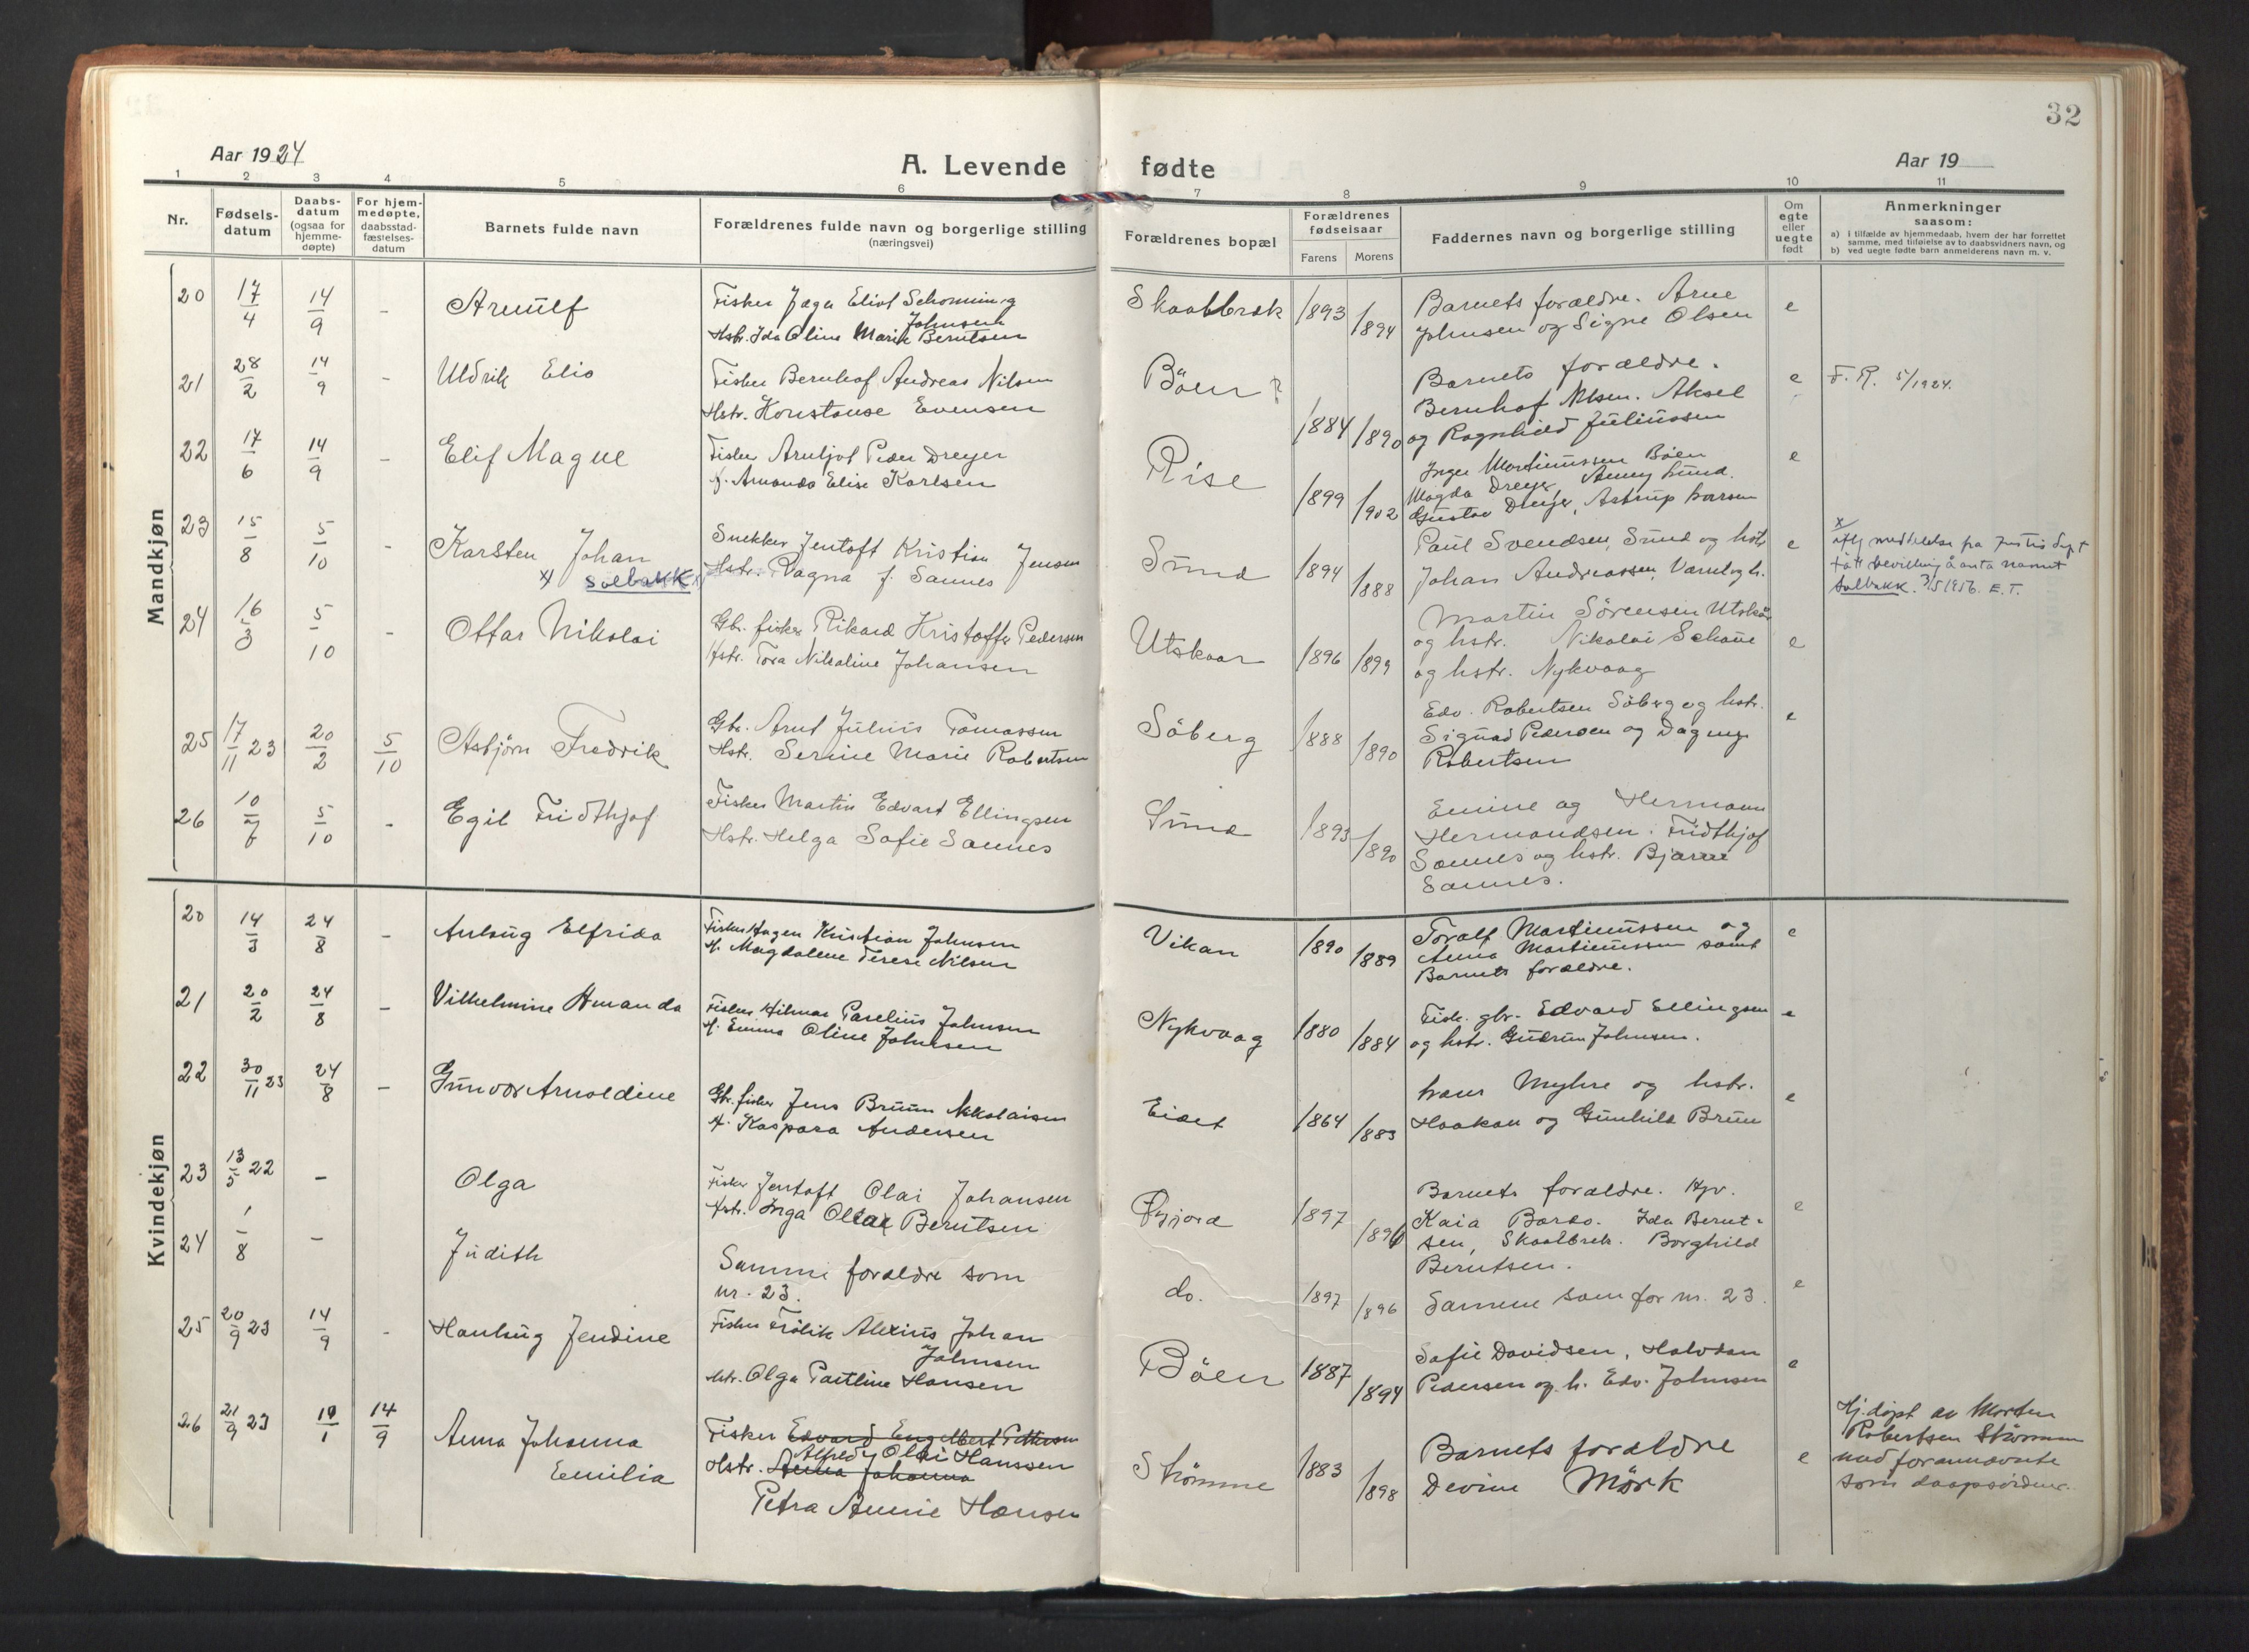 32
Aar 1924
A. Levende fødte
Aar 19
1 2 3 4 5 6 7 8 9 10 11
Nr.
Fødsels-
datum
Daabs-
datum
(ogsaa for
hjemme-
døpte)
For hjem-
medøpte,
daabsstad-
fæstelses-
datum
Barnets fulde navn
Forældrenes fulde navn og borgerlige stilling
(næringsvei)
Forældrenes bopæl
Forældrenes
fødselsaar
Farens Morens
Faddernes navn og borgerlige stilling
Om
egte
eller
uegte
født
Anmerkninger
saasom:
a) i tilfælde av hjemmedaab, hvem der har forrettet
samme, med tilføielse av to daabsvidners navn, og
b) ved uegte fødte barn anmelderens navn m. v.
Mandkjøn
20 17/4 14/9 - Arnulf
Fisker Jæger Eliot Schonning
Johnsen
Hstr. Ida Oline Marie Berntsen
Skaalbrek 1893 1894
Barnets forældre. Arne
Johnsen og Signe Olsen
e
21 28/2 14/9 - Uldrik Elio
Fisker Bernhof Andreas Nilsen
Hstr. Konstanse Evensen
Böen 1884 1890
Barnets forældre.
Bernhof Nilsen. Aksel
og Ragnhild Juliussen
e
F. R. 5/1924.
22 17/6 14/9 - Elif Magne
Fisker Arnljot Peder Dreyer
H. Amanda Elise Karlsen
Rise 1899 1902
Inger Martinussen Böen
Magda Dreyer, Anny Lund.
Gustav Dreyer, Astrup Larsen
e
23 15/8 5/10 - Karsten Johan
x) Solbakk
Snekker Jentoft Kristian Jensen
Hstr. Ragna f. Sannes
Sund 1894 1888
Paul Svendsen, Sund og hstr
Johan Andreassen, Varnl og h.
e
x/ iflg meddelelse fra Justis Dept
fått bevilling å anta navnet
Solbakk. 3/5 1956. E. T.
24 16/3 5/10 - Ottar Nikolai
Gbr. fisker Rikard Kristoffer Pedersen
Hstr. Tora Nikoline Johansen
Utskaar 1896 1899
Martin Sörensen Utskår
og hstr. Nikolai Schaue
og hstr. Nykvaag
e
25 17/11 23 20/2 5/10 Asbjörn Fredrik
Gbr. Arnt Julius Tomassen
Hstr. Serine Marie Robertsen
Söberg 1888 1890
Edv. Robertsen Söberg og hstr.
Sigurd Pedersen og Dagny
Robertsen
e
26 10/6 5/10 - Egil Fridthjof
Fisker Martin Edvart Ellingsen
Hstr. Helga Sofie Sannes
Sund 1893 1890
Emine og Hermann
Hermandsen. Fridthjof
Sannes og hstr. Bjarne
Sannes.
Kvindekjøn
20 14/3 24/8 - Anlaug Elfrida
Fisker Hagen Kristian Johnsen
H. Magdalene Terese Nilsen
Vikan 1890 1889
Toralf Martinussen og
Anna Martinussen samt
Barnets forældre.
e
21 20/2 24/8 - Vilhelmine Amanda
Fisker Hilmar Parelius Johnsen
H. Emma Oline Johnsen
Nykvaag 1880 1884
Fisk. gbr. Edvard Ellingsen
og hstr. Gudrun Johnsen.
e
22 30/11 23 24/8 - Gunvor Arnoldine
Gbr. fisker Jens Bruun Nikolaisen
H. Kaspara Andersen
Eidet 1864 1883
Hans Myhre og hstr.
Haakon og Gunhild Bruun
e
23 13/5 22 - Olga
Fisker Jentoft Olai Johansen
Hstr. Inga Berntsen
1897 1896
Barnets forældre. Hjv.
Kaia Barbo. Ida Bernt-
sen, Skaalbrek. Borghild
Berntsen.
e
24 1/8 - Judith
Samme forældre som
nr. 23.
do. 1897 1896
Samme som for nr. 23.
e
25 20/9 23 14/9 - Haukug Jendine
Fisker Frölik Alexius Johan
Johnsen
Hstr. Olga Pauline Hansen
Böen 1887 1894
Sofie Davidsen, Halvdan
Pedersen og h. Edv. Johnsen
e
26 21/9 23 10/1 14/9 Anna Johanna
Emilia
Fisker Edvard Engelbert Pettersen
Alfred Olai Hanssen
Hstr. Anna Johanna
Petra Annie Hansen
Skömme 1883 1898
Barnets forældre
Devine Mörk
e
Hj. döpt av Morten
Robertsen Skömme
med forannævnte
som daapsvidner.